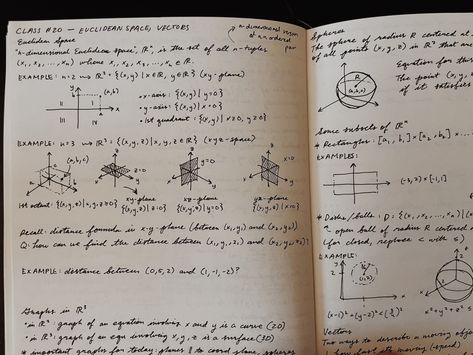 CLASS #20 — EUCLIDEAN SPACE, VECTORS
n-dimensional version of an ordered pair
Euclidean Space
"n-dimensional Euclidean space", ℝⁿ, is the set of all n-tuples
(x₁, x₂, ..., xₙ) where x₁, x₂, x₃, ..., xₙ ∈ ℝ.
EXAMPLE: n=2 ⇝ ℝ² = {(x,y) | x∈ℝ, y∈ℝ} (xy-plane)
y
(a,b)
b
II
I
a
x
III
IV
• x-axis: {(x,y) | y=0}
• y-axis: {(x,y) | x=0}
• 1st quadrant: {(x,y) | x≥0, y≥0}
EXAMPLE: n=3 ⇝ ℝ³ = {(x,y,z) | x,y,z ∈ ℝ} (xyz-space)
(a,b,c)
z=0
y=0
x=0
1st octant: {(x,y,z) | x,y,z≥0}
xy-plane
{(x,y,z) | z=0}
xz-plane
{(x,y,z) | y=0}
yz-plane
{(x,y,z) | x=0}
Recall: distance formula in x-y-plane (between (x₁,y₁) and (x₂,y₂))
Q: how can we find the distance between (x₁,y₁,z₁) and (x₂,y₂,z₂)?
EXAMPLE: distance between (0,5,2) and (1,-1,-2)?
Graphs in ℝ³
• in ℝ²: graph of an equation involving x and y is a curve (2D)
• in ℝ³: graph of an eqn involving x,y,z is a surface (3D)
* important graphs for today: planes || to coord plane, spheres
Spheres
The sphere of radius R centered at
of all points (x,y,z) in ℝ³ that are
Equation for this
R
(a,b,c)
The point (x,y,
if it satisfies
Some subsets of ℝⁿ
* Rectangles: [a₁,b₁]×[a₂,b₂]×
EXAMPLES:
(-3,2)×[-1,1]
* Disks/Balls: D = {(x₁,x₂,...,xₙ) | (
~ open ball of radius R centered
(for closed, replace < with ≤)
EXAMPLE:
y
2
(1,2)
1
x
2
(x-1)²+(y-2)² <
x²+y²+z²
Vectors
Two ways to describe a moving obje
how fast its moving (speed)